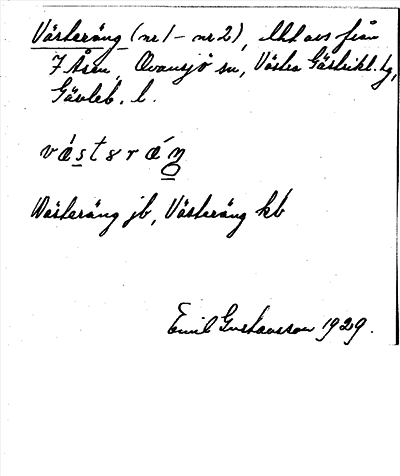 Västeräng (nr 1 – nr 2), lht avs från
7 Åsen, Ovansjö sn, Västra Gästrikl. tg,
Gävleb. l.
väst𝑠räŋ
Wästeräng jb, Västeräng kb
Emil Gustavsson 1929.